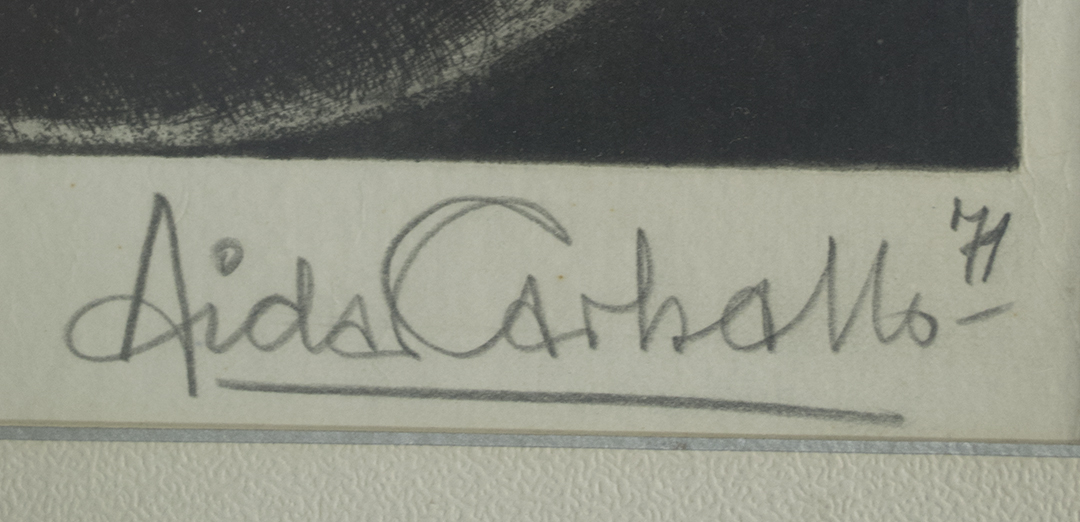 Aida Carballo 71